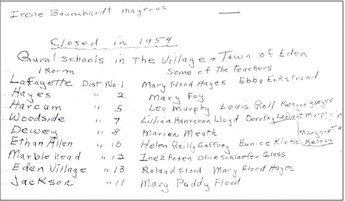 Irene Baumhardt Magerus
Closed in 1954
Rural schools in The Village & Town of Eden
1 Room Some of The Teachers
Lafayette Dist No 1 Mary Flood Hayes Ebba Eckstrand
Hayes " 2 Mary Foy
Harcum " 5 Leo Murphy Louis Rell Kathryn Yaeger
Woodside " 7 Lillian Hanrahan Lloyd Dorothy LaFave Murphy
Dewey " 8 Marren Meath Margaret
Ethan Allen " 10 Helen Reilly Gaffney Eunice Klotz Kelroy
Marblehead " 12 Inez Olive Schlaefer Glass
Eden Village " 13 Roland Flood Mary Flood Hayes
Jackson " 11 Mary Paddy Flood